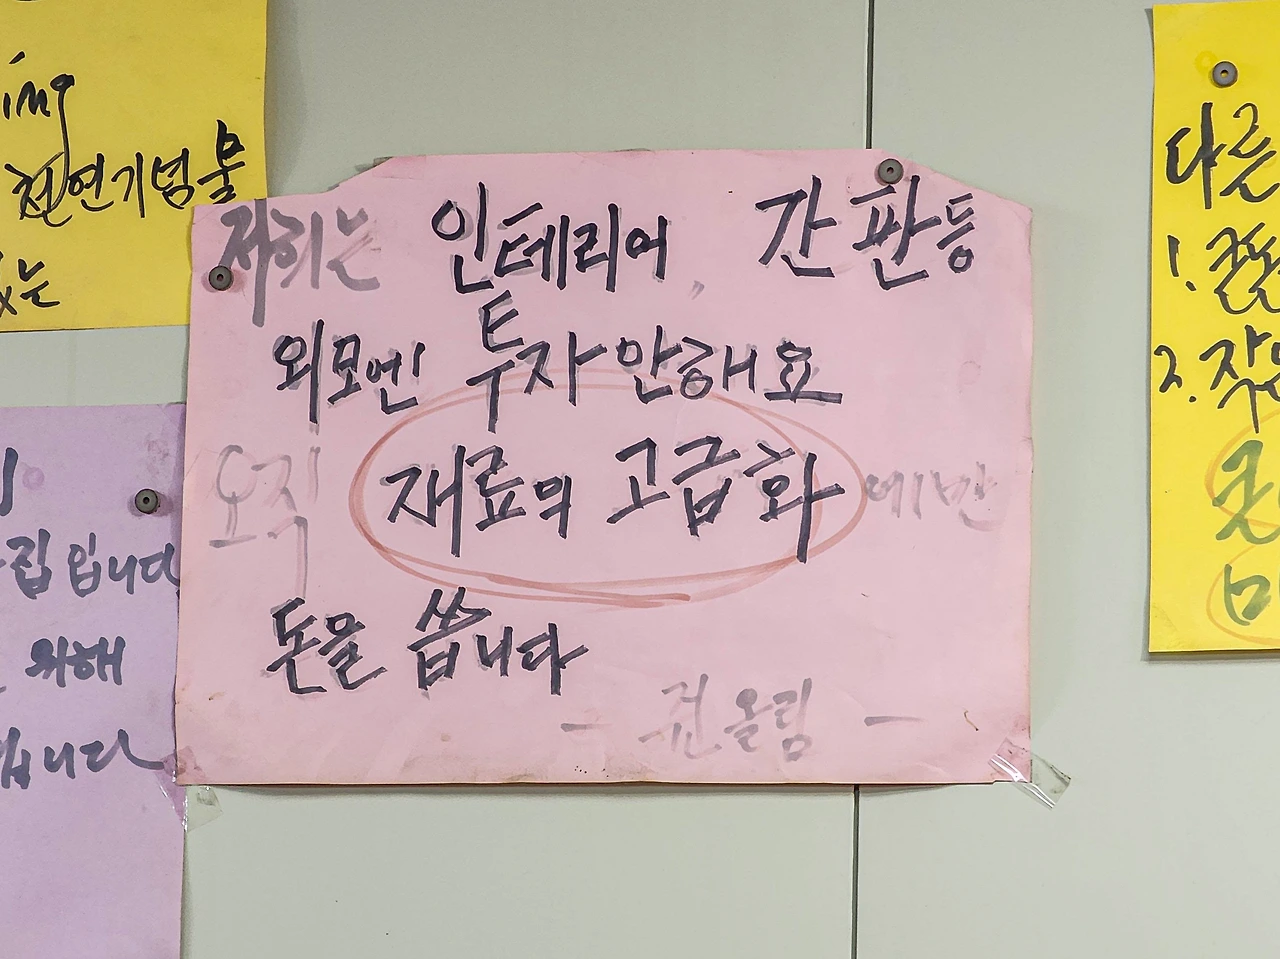 ing
천연기념물
는
저희는 인테리어, 간판등
외모엔 투자 안해요
오직 재료의 고급화 에만
돈을 씁니다
- 쥔 올림 -
립 입니다
위해
입니다
다른
1.
2. 작
큰